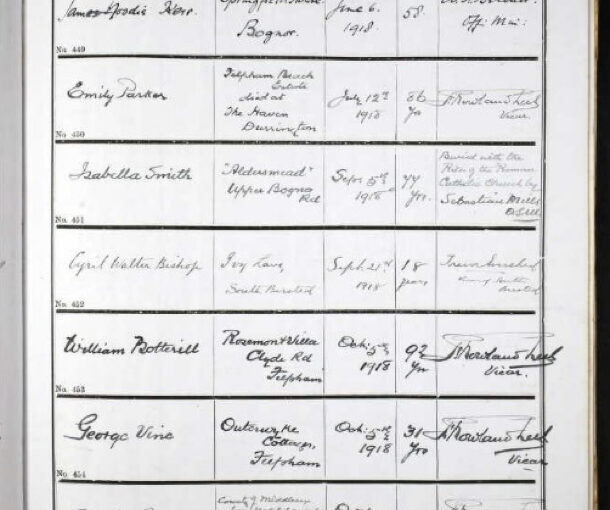 James Moodie Kerr
Bognor.
June 6.
1918.
58.
Off: Min:
No. 449
Emily Parker
Felpham Beach
Estate
died at
The Haven
Durrington
July 12th
1918
86
Yrs
Rowland
Vicar.
No. 450
Isabella Smith
"Aldersmead"
Upper Bognor
Rd
Sept. 5th
1918
77
Yrs.
Buried with the
Rites of the Roman
Catholic Church by
Sebastian
No. 451
Cyril Walter Bishop
Ivy Lane,
South Bersted
Sept. 21st
1918
18
years
South
Bersted
No. 452
William Botterill
Rosemont Villa
Clyde Rd
Felpham
Oct: 5th
1918
92
Yrs
Rowland
Vicar.
No. 453
George Vine
Outerwyke
Cottages,
Felpham
Oct. 5th
1918
31
Yrs
Rowland
Vicar
No. 454
County of Middlesex